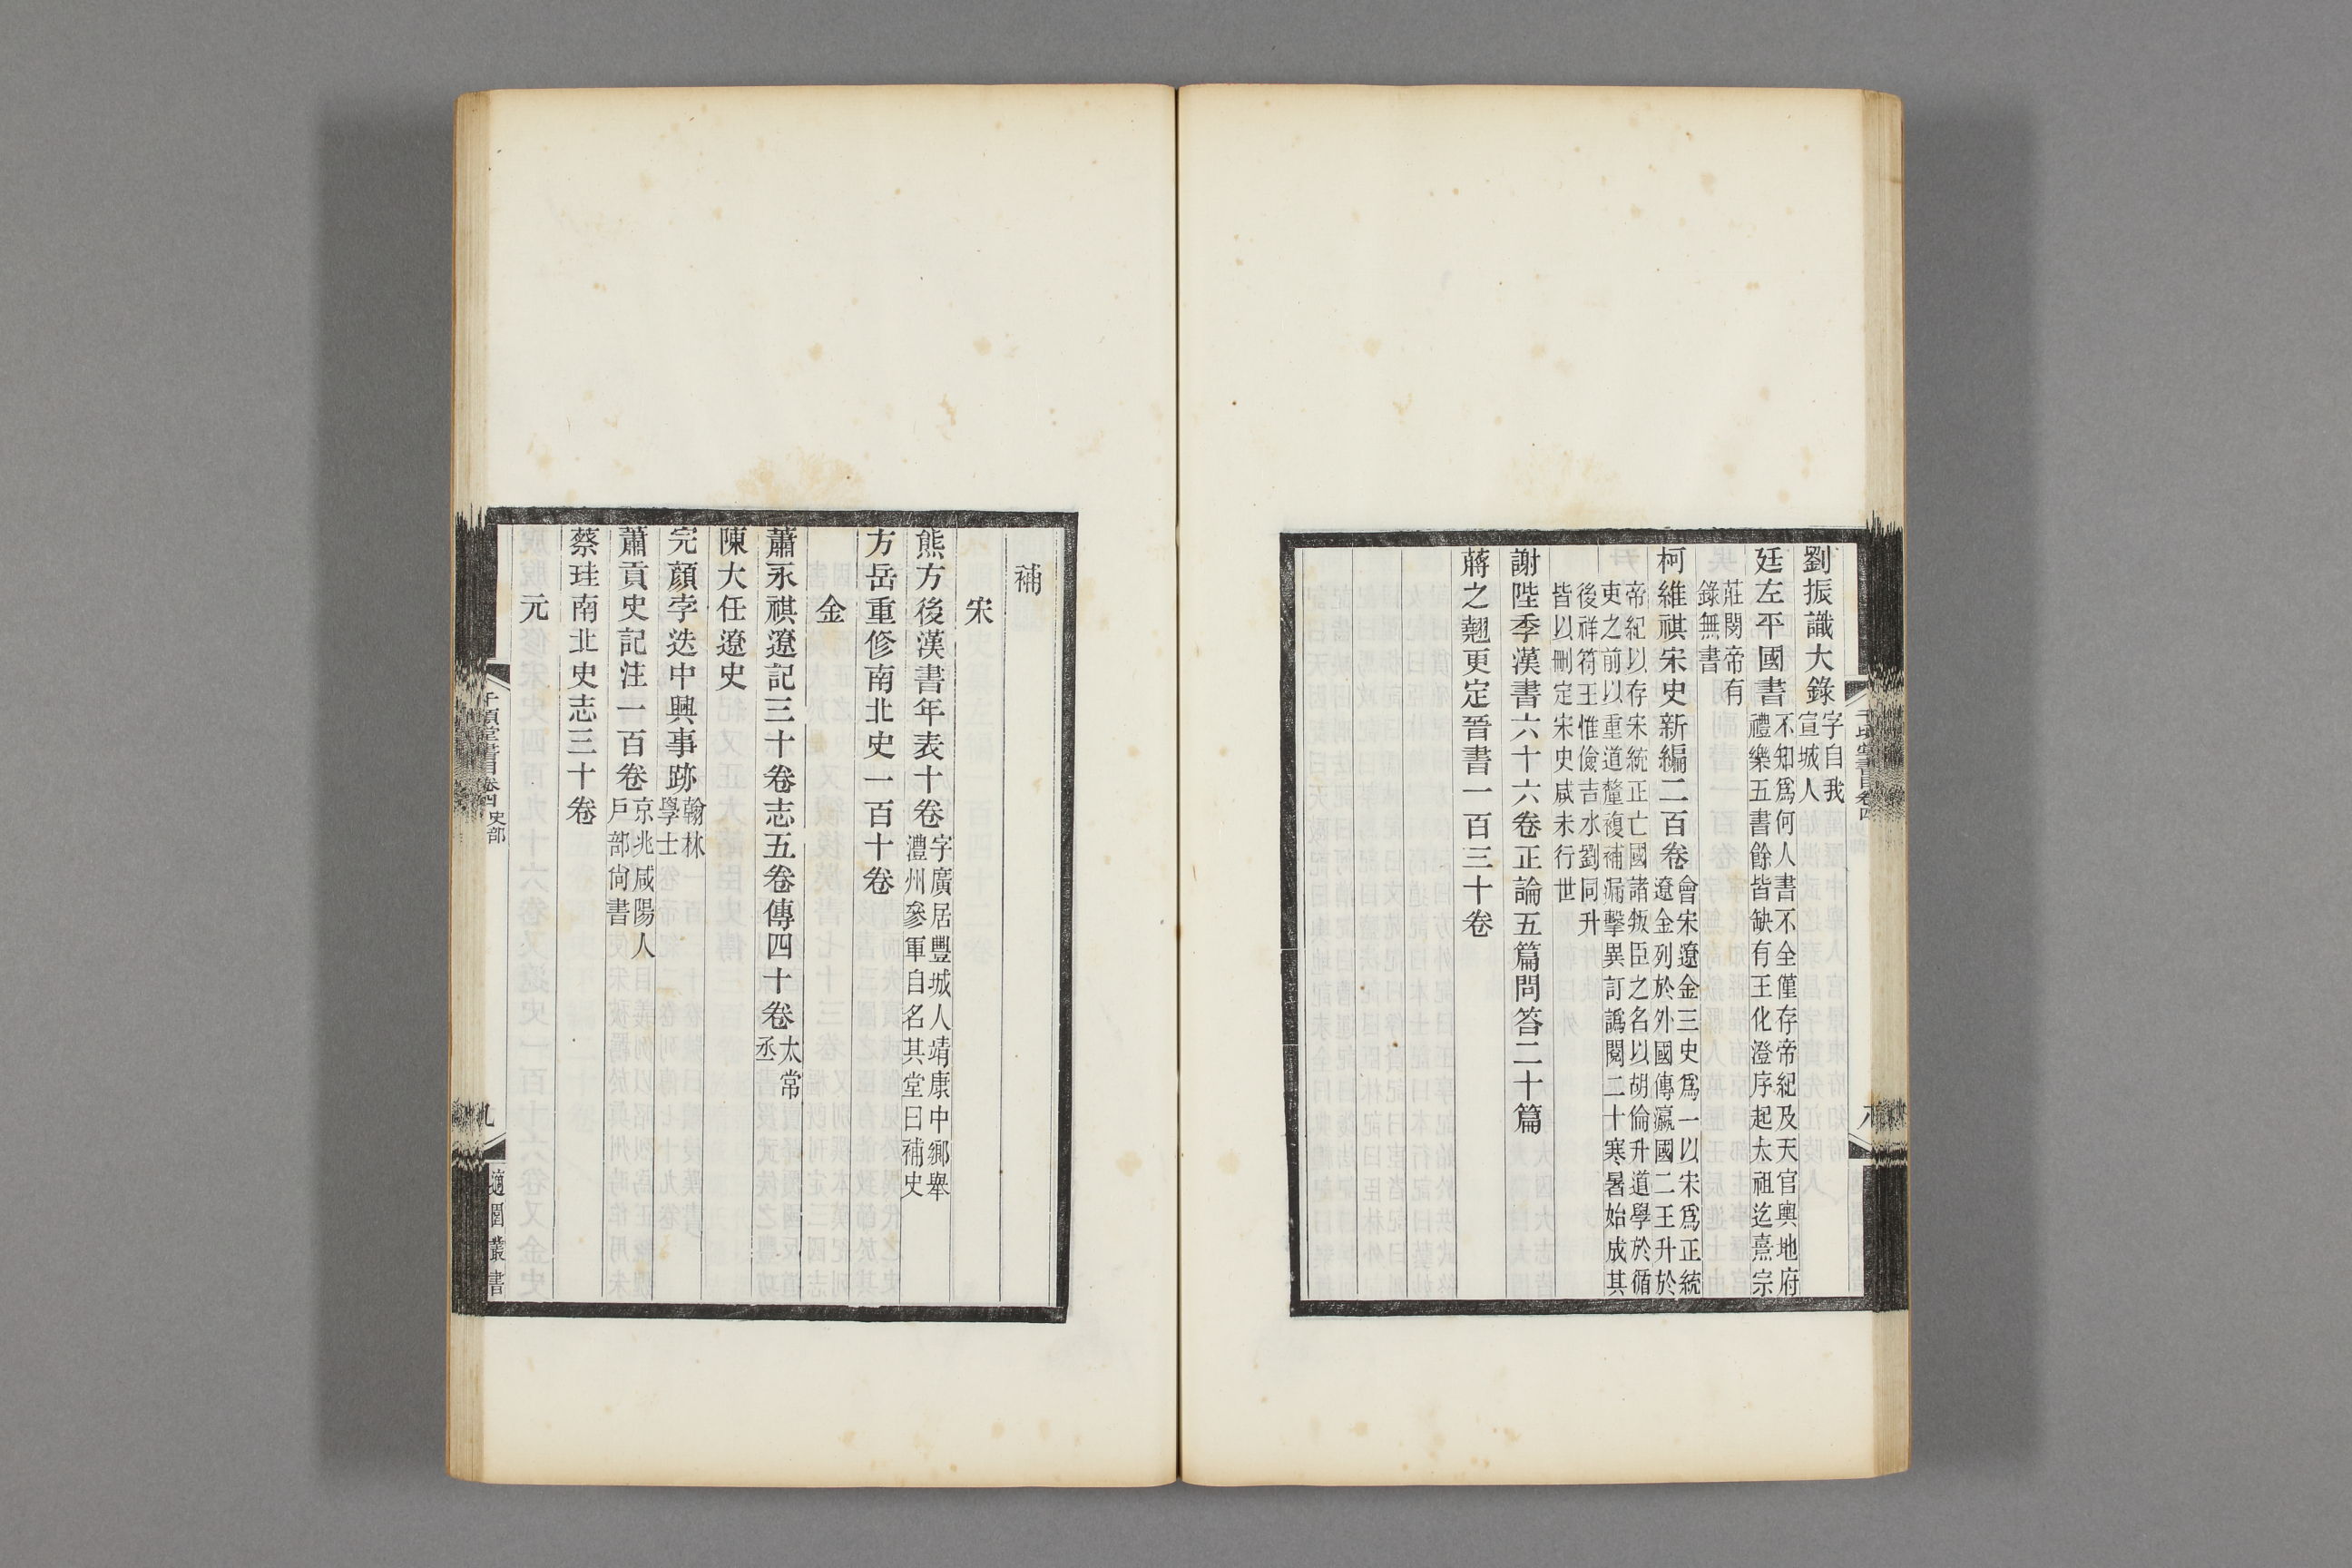 劉振識大錄字自我宣城人
廷左平國書不知爲何人書不全僅存帝紀及天官輿地府禮樂五書餘皆缺有王化澄序起太祖迄熹宗
莊閔帝有錄無書
柯維祺宋史新編二百卷會宋遼金三史爲一以宋爲正統遼金列於外國傳瀛國二王升於
帝紀以存宋統正亡國諸叛臣之名以胡倫升道學於循吏之前以重道釐複補漏擊異訂譌閱二十寒暑始成其
後祥符王惟儉吉水劉同升皆以刪定宋史咸未行世
謝陛季漢書六十六卷正論五篇問答二十篇
蔣之翹更定晉書一百三十卷
千頃堂書目卷四
八
補
宋
熊方後漢書年表十卷字廣居豐城人靖康中鄉舉澧州參軍自名其堂曰補史
方岳重修南北史一百十卷
金
蕭永祺遼記三十卷志五卷傳四十卷太常丞
陳大任遼史
完顏孛迭中興事跡翰林學士
蕭貢史記注一百卷京兆咸陽人戶部尙書
蔡珪南北史志三十卷
元
千頃堂書目卷四 史部
九
適園叢書